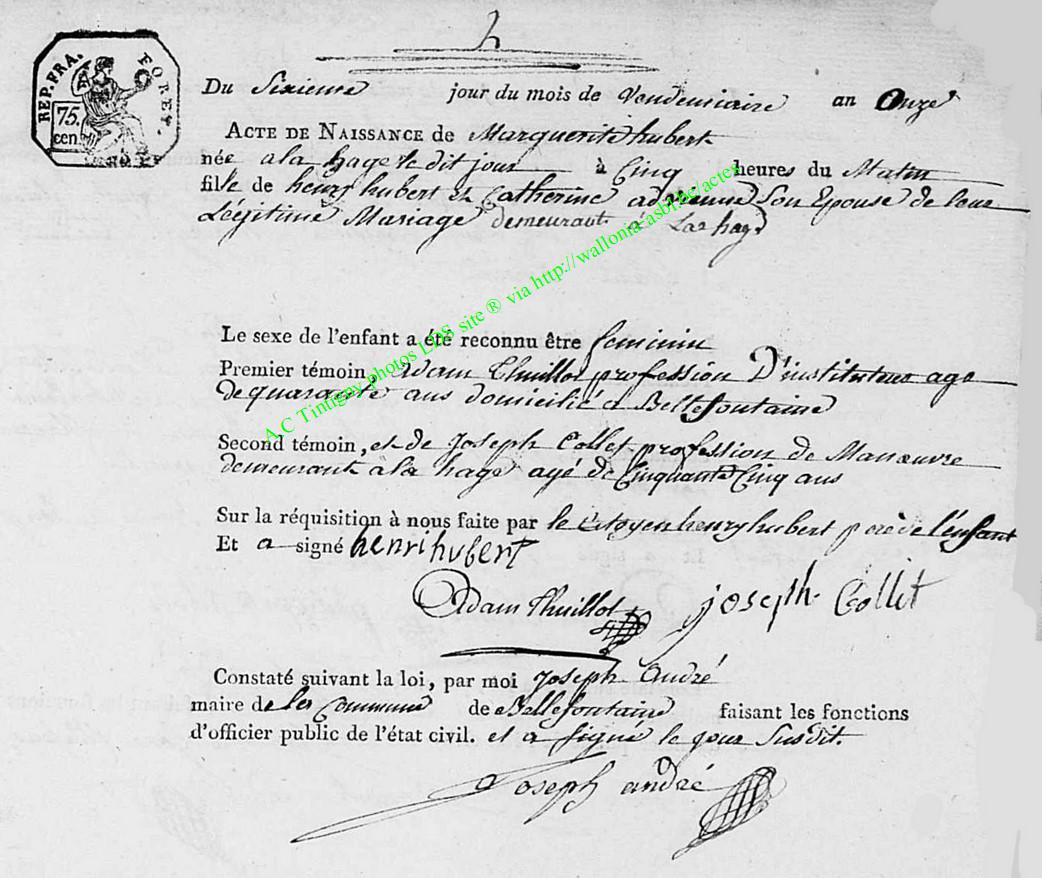 h
REP. FRA. FORET.
75.
cen.
Du Sixieme jour du mois de Vendemiaire an Onze
ACTE DE NAISSANCE de Marguerite hubert
née a la hage le dit jour à Cinq heures du Matin
fille de henry hubert et Catherine adrienne Son Epouse de leur
Légitime Mariage demeurant á La hage
Le sexe de l'enfant a été reconnu être feminin
Premier témoin, Adam Thuillot profession D'instituteur age
de quarante ans domicilié a Bellefontaine
Second témoin, et de Joseph Collet profession de Manœuvre
demeurant a la hage agé de Cinquante Cinq ans
Sur la réquisition à nous faite par le Citoyen henry hubert pere de l'enfant
Et a signé henri hubert
Adam Thuillot joseph Collet
Constaté suivant la loi, par moi Joseph André
maire de la Commune de Bellefontaine faisant les fonctions
d'officier public de l'état civil. et a signé le jour Susdit.
Joseph andré
A.C Tintigny photos LDS site ® via http://wallonia-asbl.be/actes